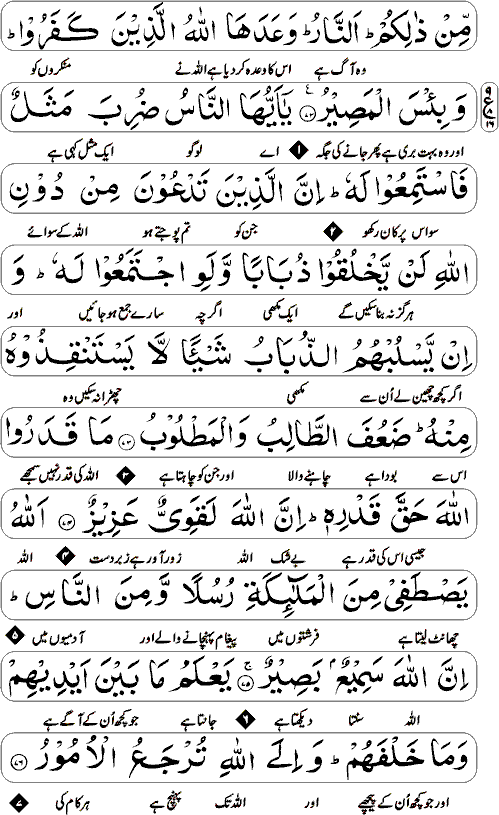 مِّنْ ذٰلِكُمْ ؕ اَلنَّارُ ؕ وَعَدَهَا اللّٰهُ الَّذِيْنَ كَفَرُوْا ؕ
وہ آگ ہے اس کا وعدہ کر دیا ہے اللہ نے منکروں کو
وَ بِئْسَ الْمَصِيْرُ ۟﴿۷۲﴾ يٰۤاَيُّهَا النَّاسُ ضُرِبَ مَثَلٌ
اور وہ بہت بری ہے پھر جانے کی جگہ ۱ اے لوگو ایک مثل کہی ہے
فَاسْتَمِعُوْا لَهٗ ؕ اِنَّ الَّذِيْنَ تَدْعُوْنَ مِنْ دُوْنِ
سو اس پر کان رکھو ۲ جن کو تم پوجتے ہو اللہ کے سوائے
اللّٰهِ لَنْ يَّخْلُقُوْا ذُبَابًا وَّلَوِ اجْتَمَعُوْا لَهٗ ؕ وَ
ہرگز نہ بنا سکیں گے ایک مکھی اگرچہ سارے جمع ہو جائیں اور
اِنْ يَّسْلُبْهُمُ الذُّبَابُ شَيْـًٔا لَّا يَسْتَنْقِذُوْهُ
اگر کچھ چھین لے اُن سے مکھی چھڑا نہ سکیں وہ
مِنْهُ ؕ ضَعُفَ الطَّالِبُ وَالْمَطْلُوْبُ ﴿۷۳﴾ مَا قَدَرُوا
اس سے بودا ہے چاہنے والا اور جن کو چاہتا ہے ۳ اللہ کی قدر نہیں سمجھے
اللّٰهَ حَقَّ قَدْرِهٖ ؕ اِنَّ اللّٰهَ لَقَوِىٌّ عَزِيْزٌ ﴿۷۴﴾ اَللّٰهُ
جیسی اس کی قدر ہے بے شک اللہ زور آور ہے زبردست ۴ اللہ
يَصْطَفِىْ مِنَ الْمَلٰٓئِكَةِ رُسُلًا وَّمِنَ النَّاسِ ؕ
چھانٹ لیتا ہے فرشتوں میں پیغام پہنچانے والے اور آدمیوں میں ۵
اِنَّ اللّٰهَ سَمِيْعٌۢ بَصِيْرٌ ۚ﴿۷۵﴾ يَعْلَمُ مَا بَيْنَ اَيْدِيْهِمْ
اللہ سنتا دیکھتا ہے ۶ جانتا ہے جو کچھ اُن کے آگے ہے
وَمَا خَلْفَهُمْ ؕ وَ اِلَى اللّٰهِ تُرْجَعُ الْاُمُوْرُ ﴿۷۶﴾
اور جو کچھ اُن کے پیچھے اور اللہ تک پہنچ ہے ہر کام کی ۷